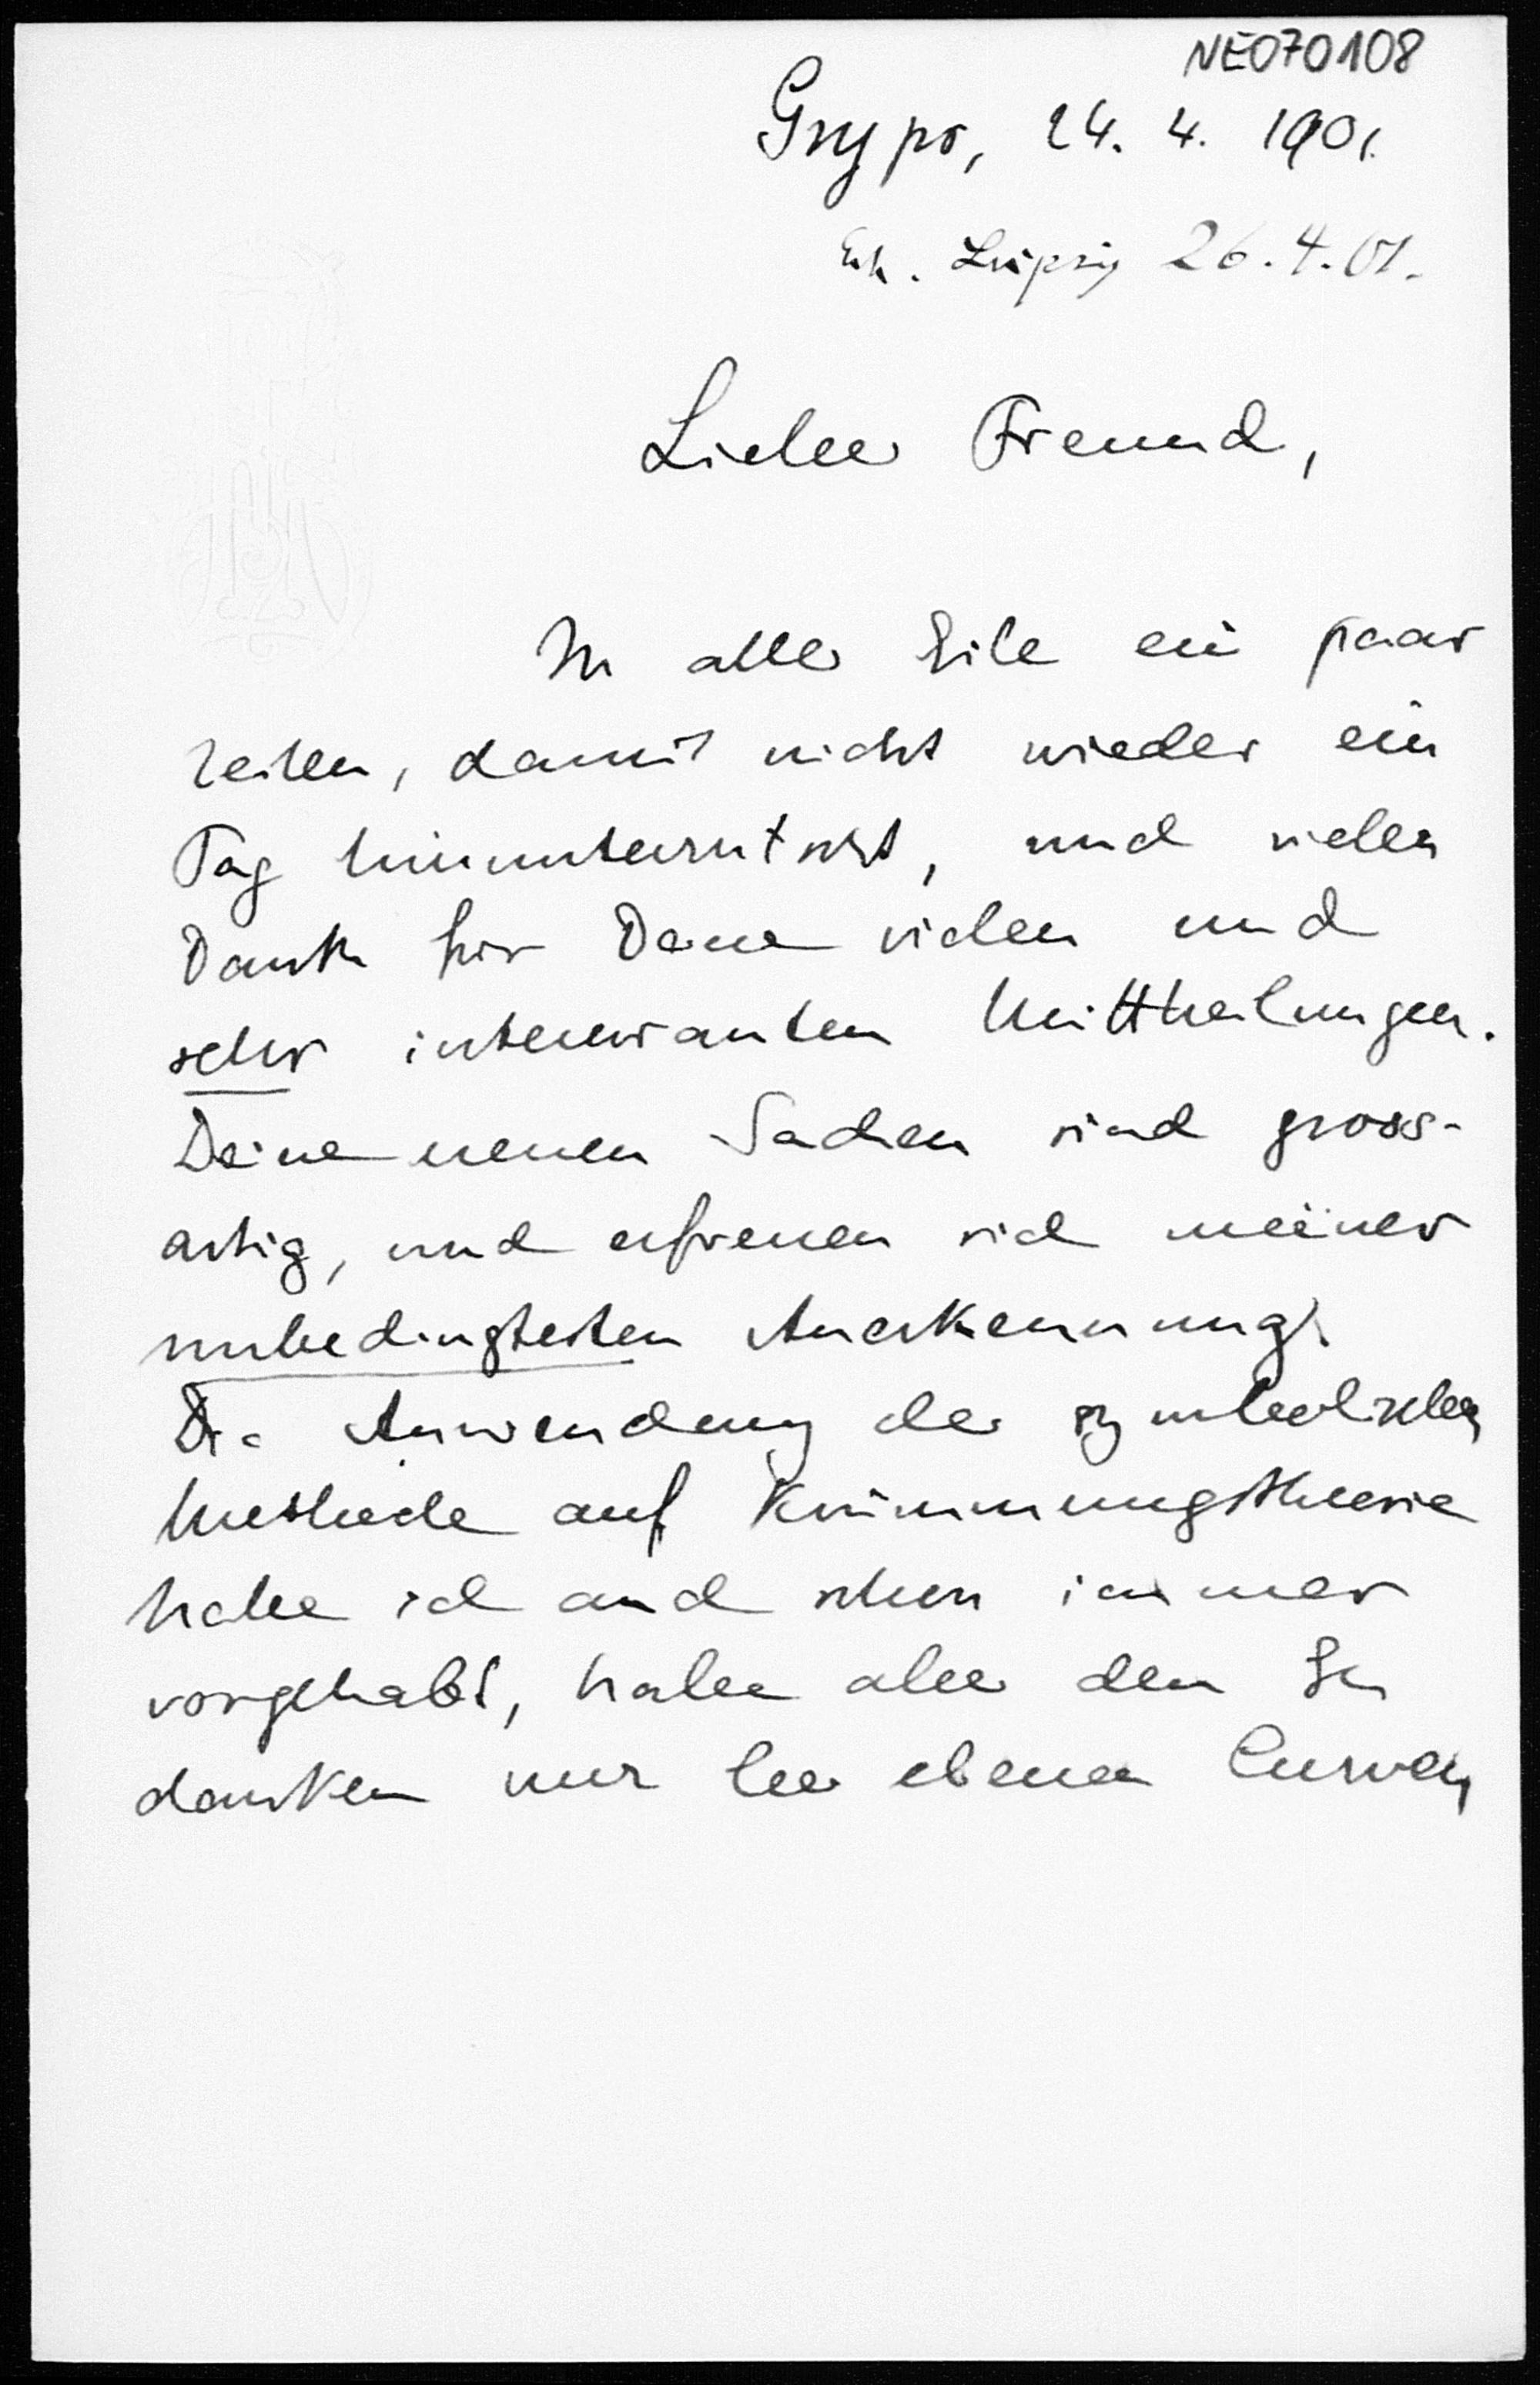 NE070108
Gryps, 24. 4. 1901.
Erh. Leipzig 26.4.01.
Lieber Freund,
In aller Eile ein paar
Zeilen, damit nicht wieder ein
Tag hinunterrutscht, und vielen
Dank für Deine vielen und
sehr interessanten Mittheilungen.
Deine neuen Sachen sind gross-
artig, und erfreuen sich meiner
unbedingtesten Anerkennung.
Die Anwendung der symbolischen
Methode auf Krümmungstheorie
habe ich auch schon immer
vorgehabt, habe aber den Ge
danken nur bei ebenen Curven